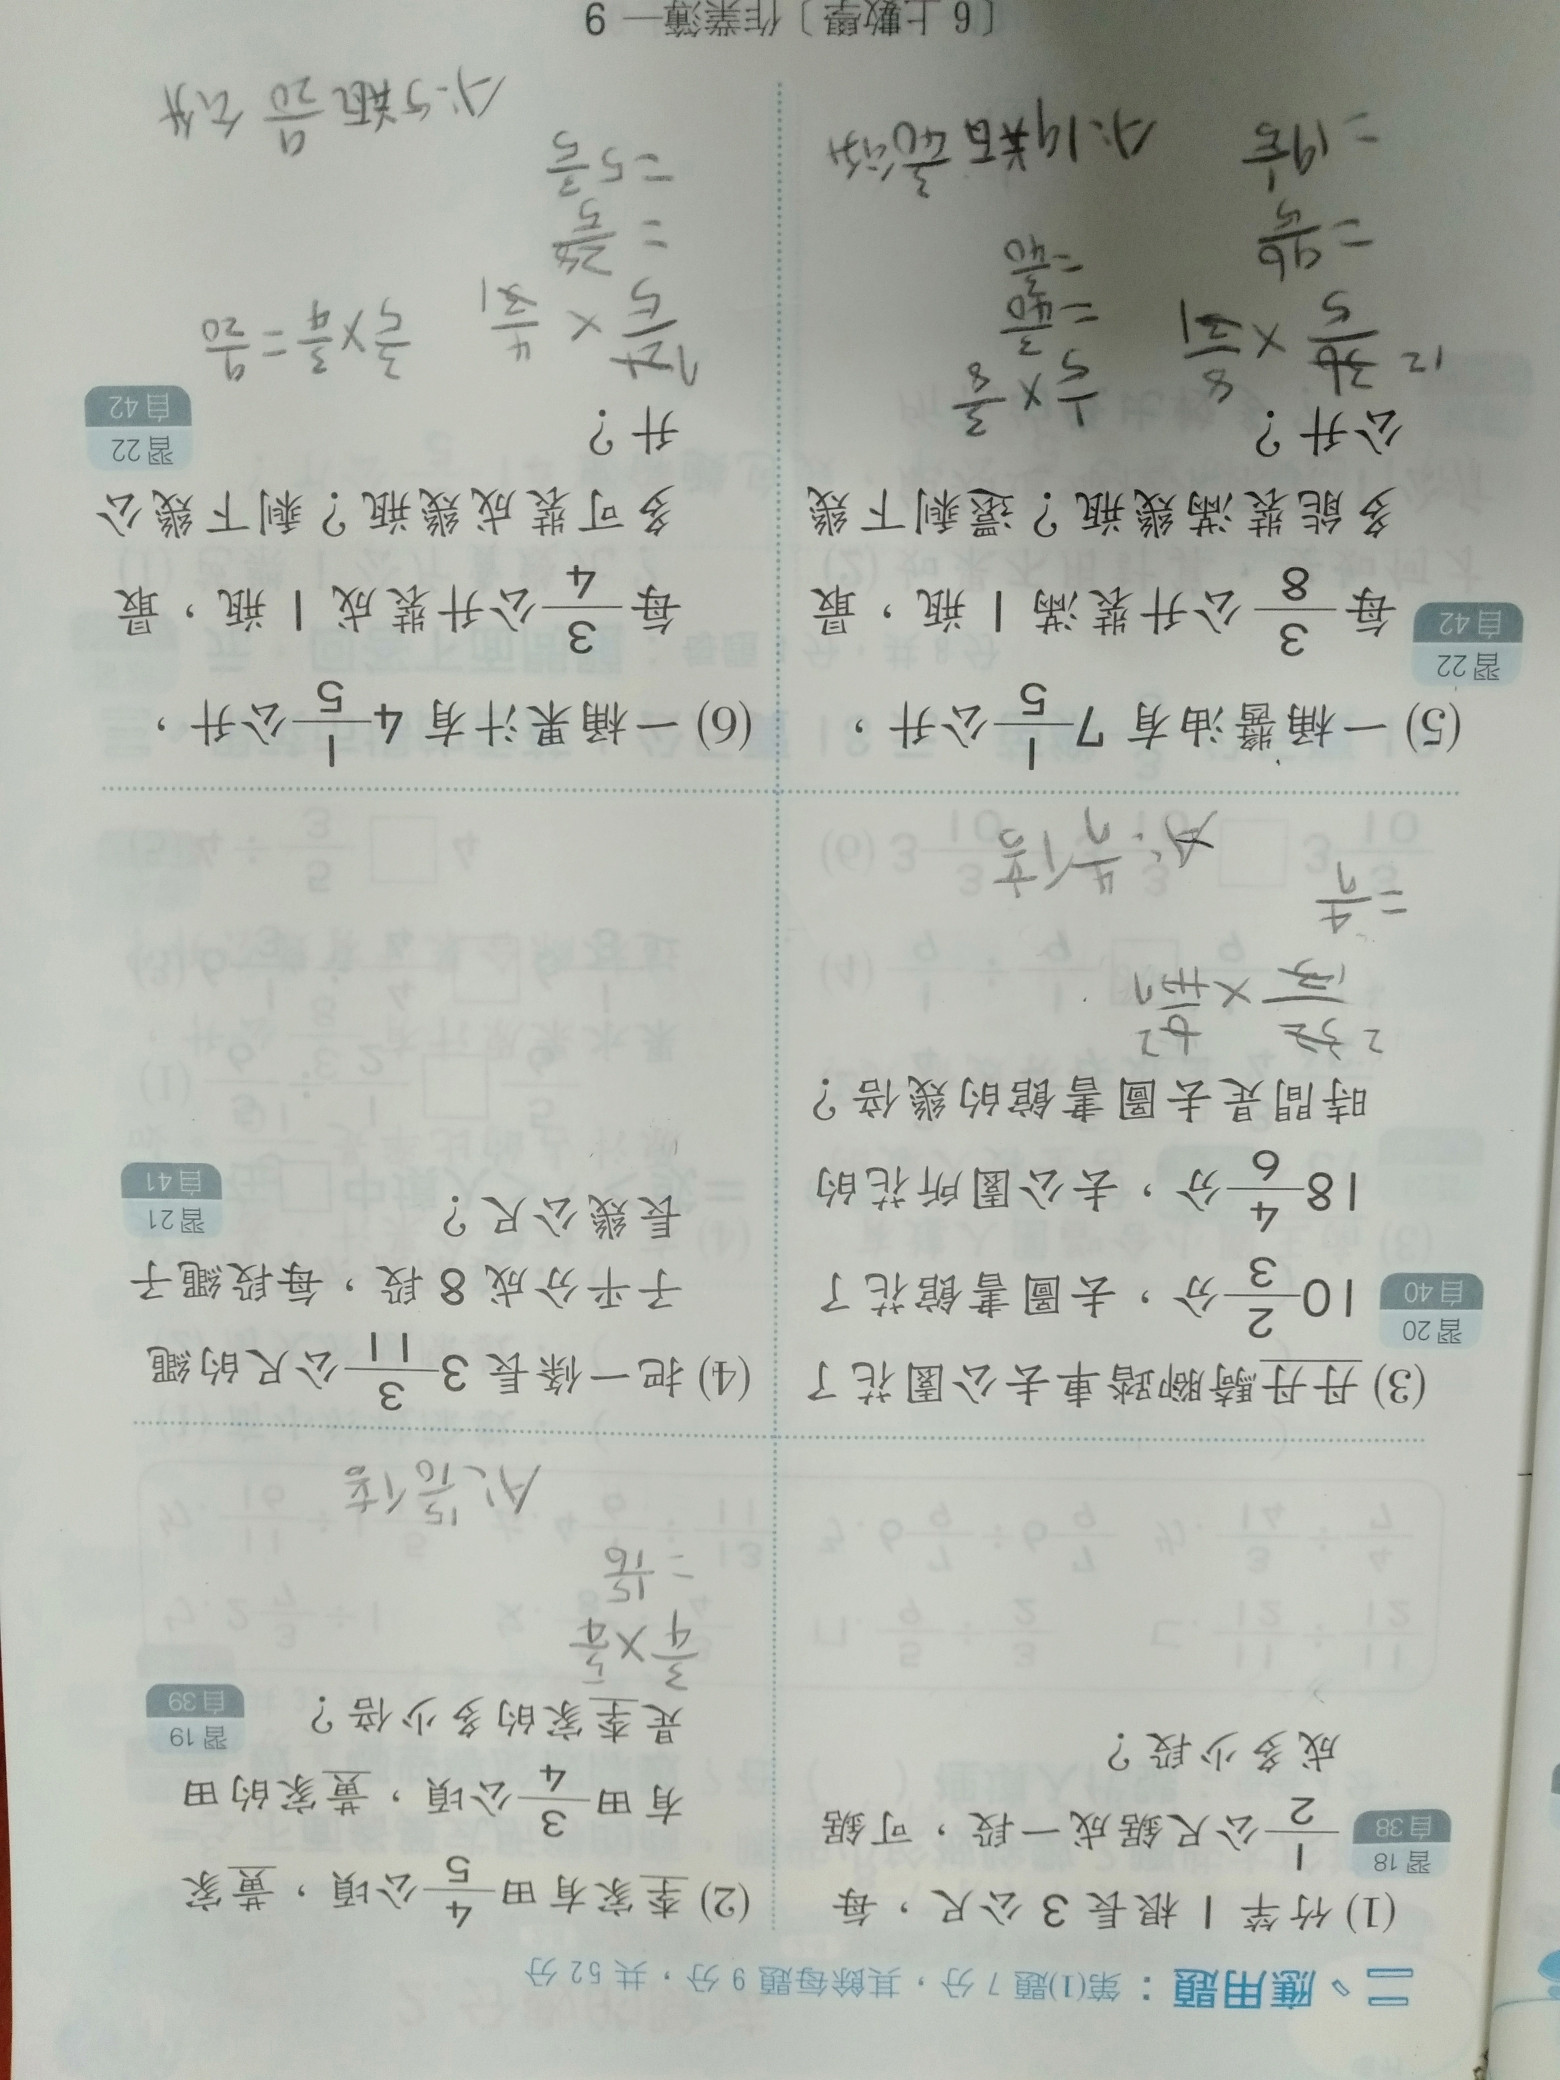 二、應用題：第(1)題 7 分，其餘每題 9 分，共 52 分
(1) 竹竿 1 根長 3 公尺，每
1/2 公尺鋸成一段，可鋸
成多少段？
習18
自38
(2) 李家有田 4/5 公頃，黃家
有田 3/4 公頃，黃家的田
是李家的多少倍？
習19
自39
3/4 × 5/4
= 15/16
A: 15/16 倍
(3) 丹丹騎腳踏車去公園花了
10 2/3 分，去圖書館花了
18 4/6 分，去公園所花的
時間是去圖書館的幾倍？
習20
自40
= 4/7
A: 4/7 倍
(4) 把一條長 3 3/11 公尺的繩
子平分成 8 段，每段繩子
長幾公尺？
習21
自41
(5) 一桶醬油有 7 1/5 公升，
每 3/8 公升裝滿 1 瓶，最
多能裝滿幾瓶？還剩下幾
公升？
習22
自42
12 36/5 × 8/3 1
= 96/5
= 19 1/5
1/5 × 3/8
= 3/40
= 3/40
A: 19瓶 3/40 公升
(6) 一桶果汁有 4 1/5 公升，
每 3/4 公升裝成 1 瓶，最
多可裝成幾瓶？剩下幾公
升？
習22
自42
7 21/5 × 4/3 1
= 28/5
= 5 3/5
3/5 × 3/4 = 9/20
A: 5瓶 9/20 公升
〔6上數學〕作業簿— 9